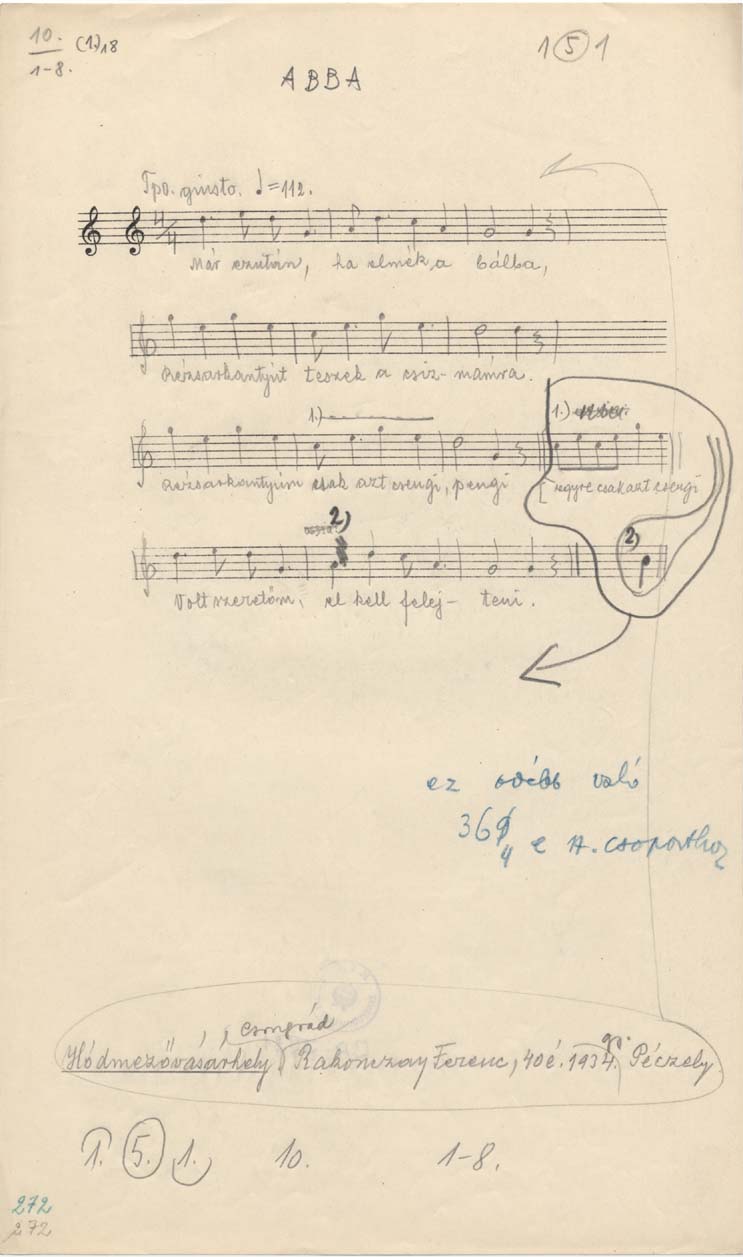 10. (1.) 18 1 5 1
1-8.
ABBA
Tpo. giusto. ♩=112.
4/4
Már ezután, ha elmék a bálba,
Rézsarkantyút teszek a csiz-mámra.
1.) 1.)
Rézsarkantyúm csak azt csengi, pengi [egyre csak azt csengi
2) 2)
Volt szeretőm, el kell felej- teni.
ez odébb való
369
4 e A. csoporthoz
Csongrád
Hódmezővásárhely Rakonczay Ferenc, 40 é. 1934. gy. Péczely
1. 5. 1. 10. 1-8.
272
272